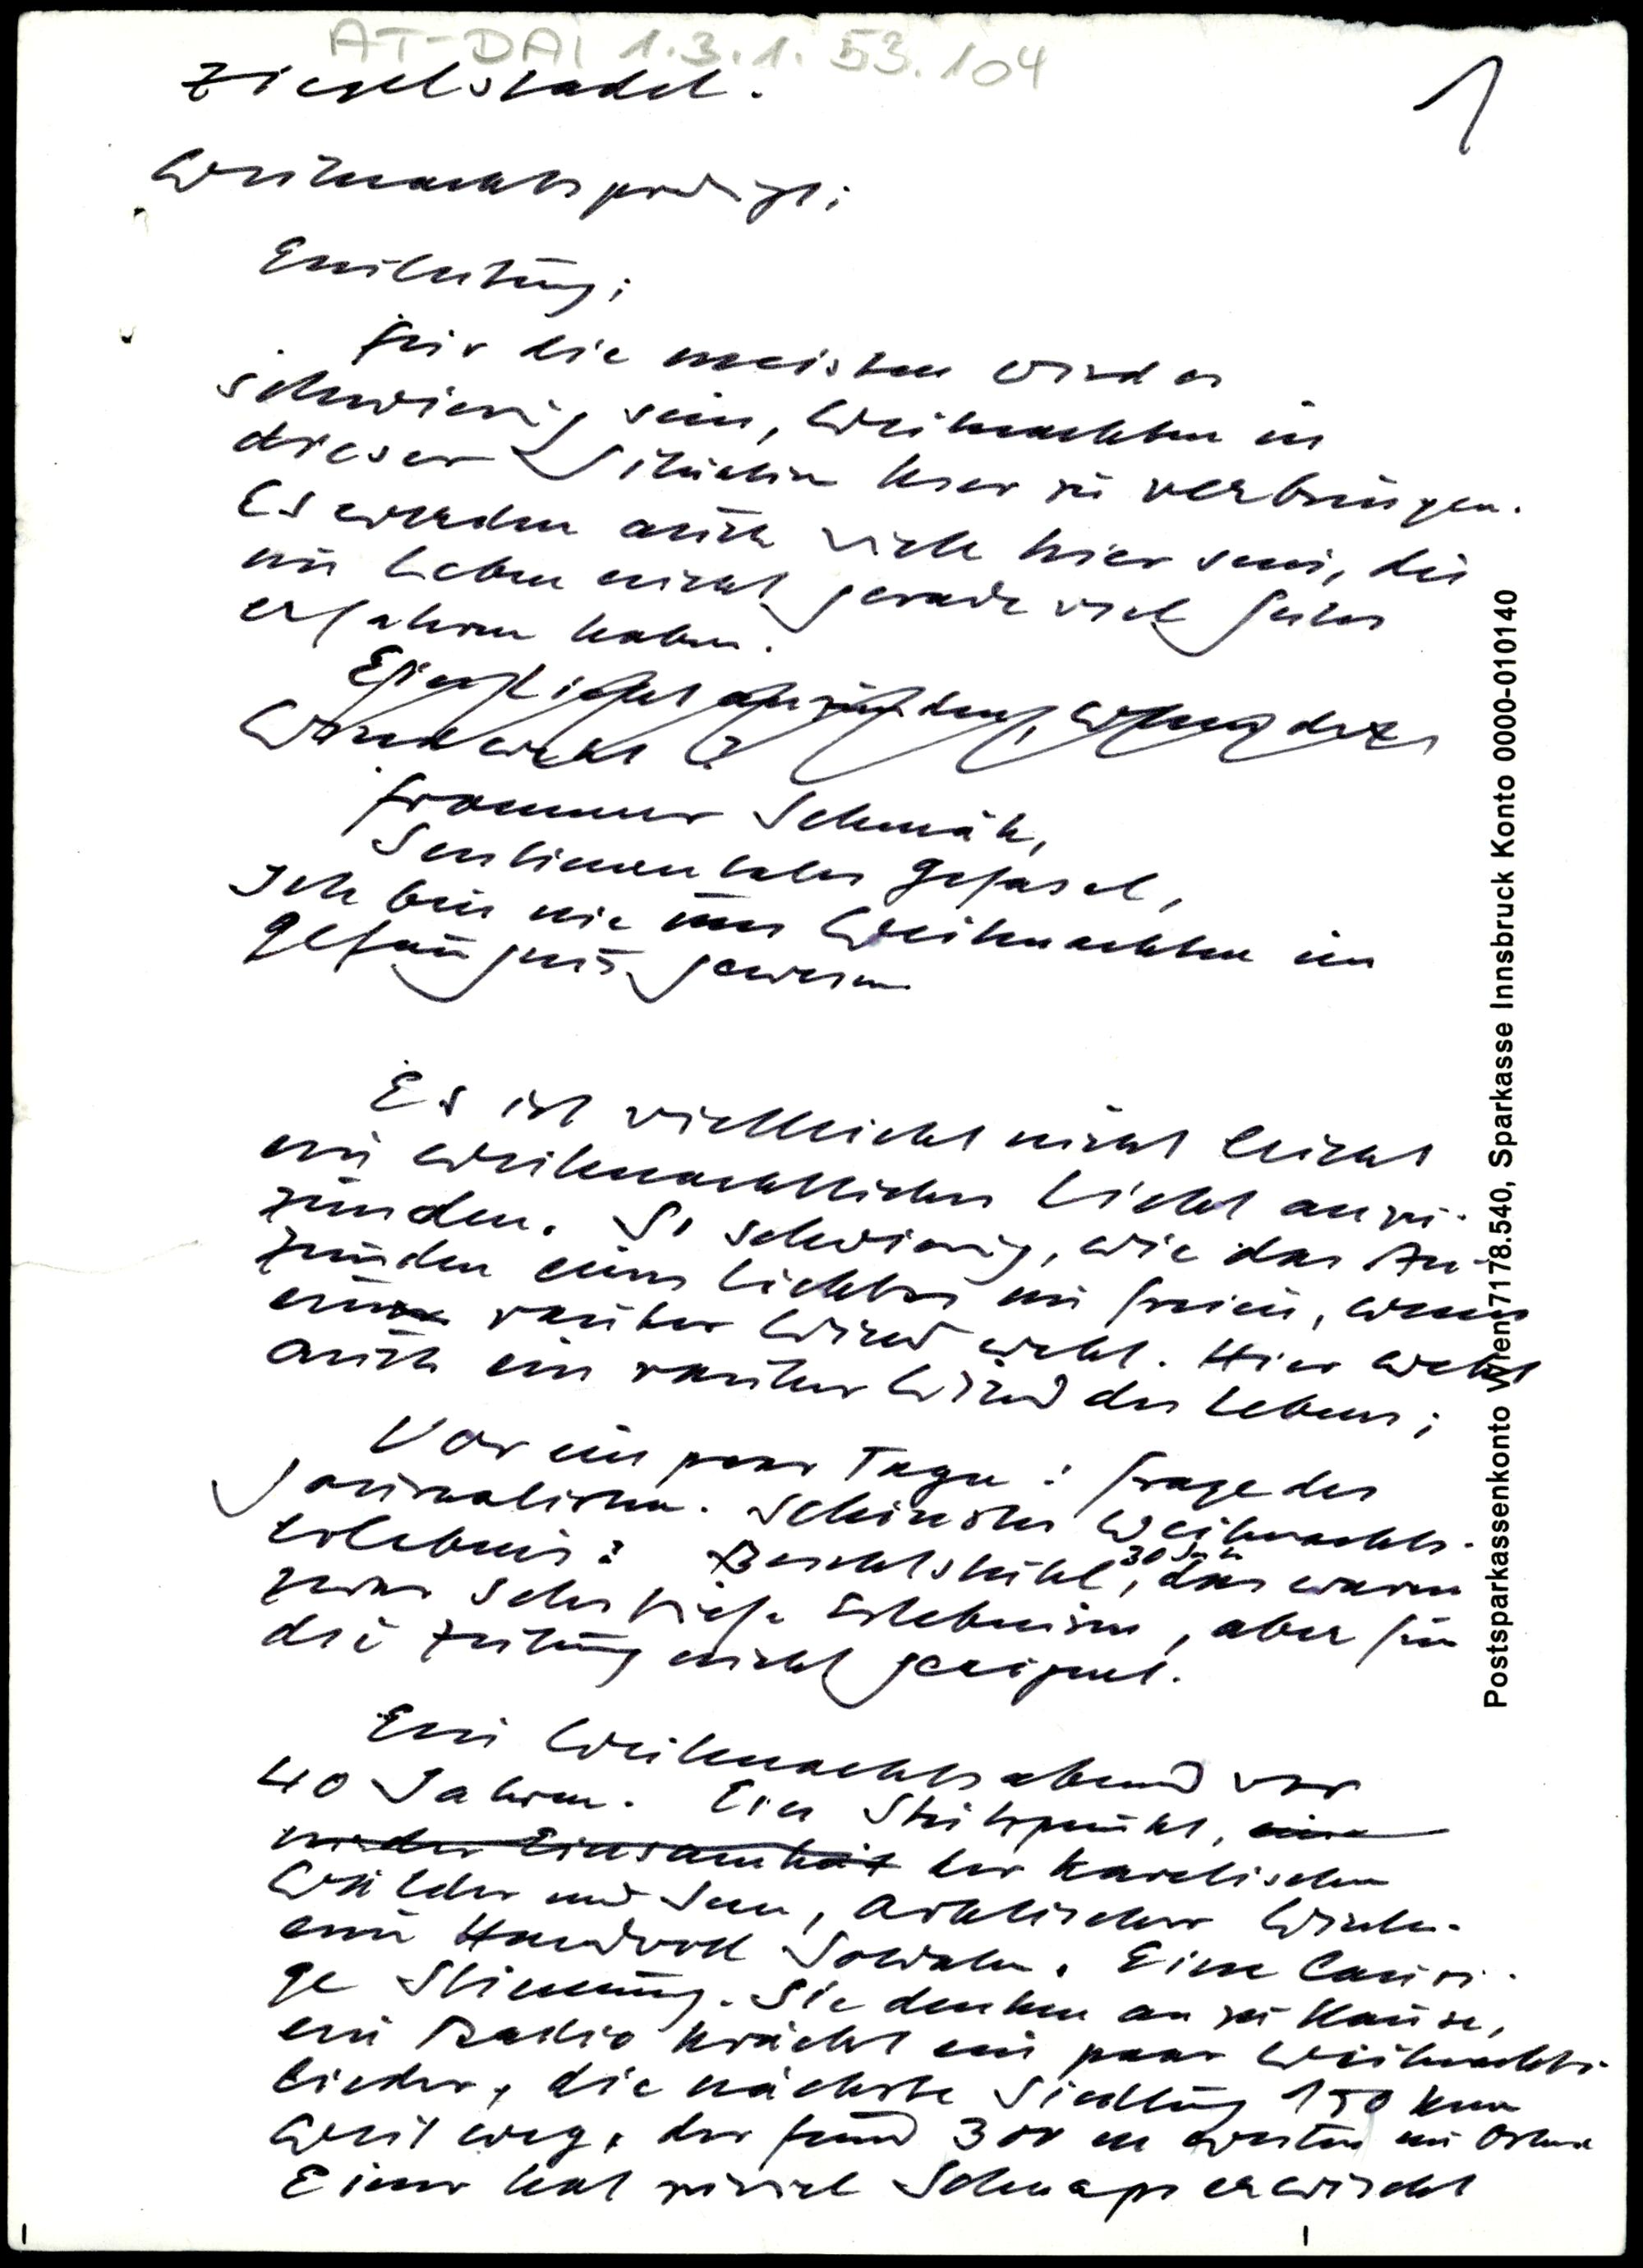 AT-DAI 1.3.1.53.104
Ziegelstadel. 1
Weihnachtspredigt:
Einleitung:
Für die meisten wird es
schwierig sein, Weihnachten in
dieser Situation hier zu verbringen.
Es werden auch viele hier sein, die
im Leben nicht gerade viel Gutes
erfahren haben.
Ein Licht anzünden, wenn der
Wind weht ?
frommer Schmäh,
Sentimentales Gefasel,
Ich bin nie zu Weihnachten im
Gefängnis gewesen
Es ist vielleicht nicht leicht
ein weihnachtliches Licht anzu-
zünden. So schwierig, wie das An-
zünden eines Lichtes im freien, wenn
ein rauher Wind weht. Hier weht
auch ein rauher Wind des Lebens;
Vor ein paar Tagen: Frage des
Journalisten. Schönstes Weihnachts-
erlebnis? Beichtstuhl, das waren
zwar sehr tiefe Erlebnisse, aber für
die Zeitung nicht geeignet.
Ein Weihnachtsabend vor
40 Jahren. Ein Stützpunkt, eine
in der Einsamkeit der karelischen
Wälder und Seen, arktischer Winter.
eine Handvoll Soldaten. Eine launi-
ge Stimmung. Sie denken an zu Hause,
ein Radio krächzt ein paar Weihnachts-
lieder, die nächste Siedlung 150 km
weit weg, der Feind 300 m weiter im Osten
Einer hat zuviel Schnaps erwischt
Postsparkassenkonto Wien 7178.540, Sparkasse Innsbruck Konto 0000-010140